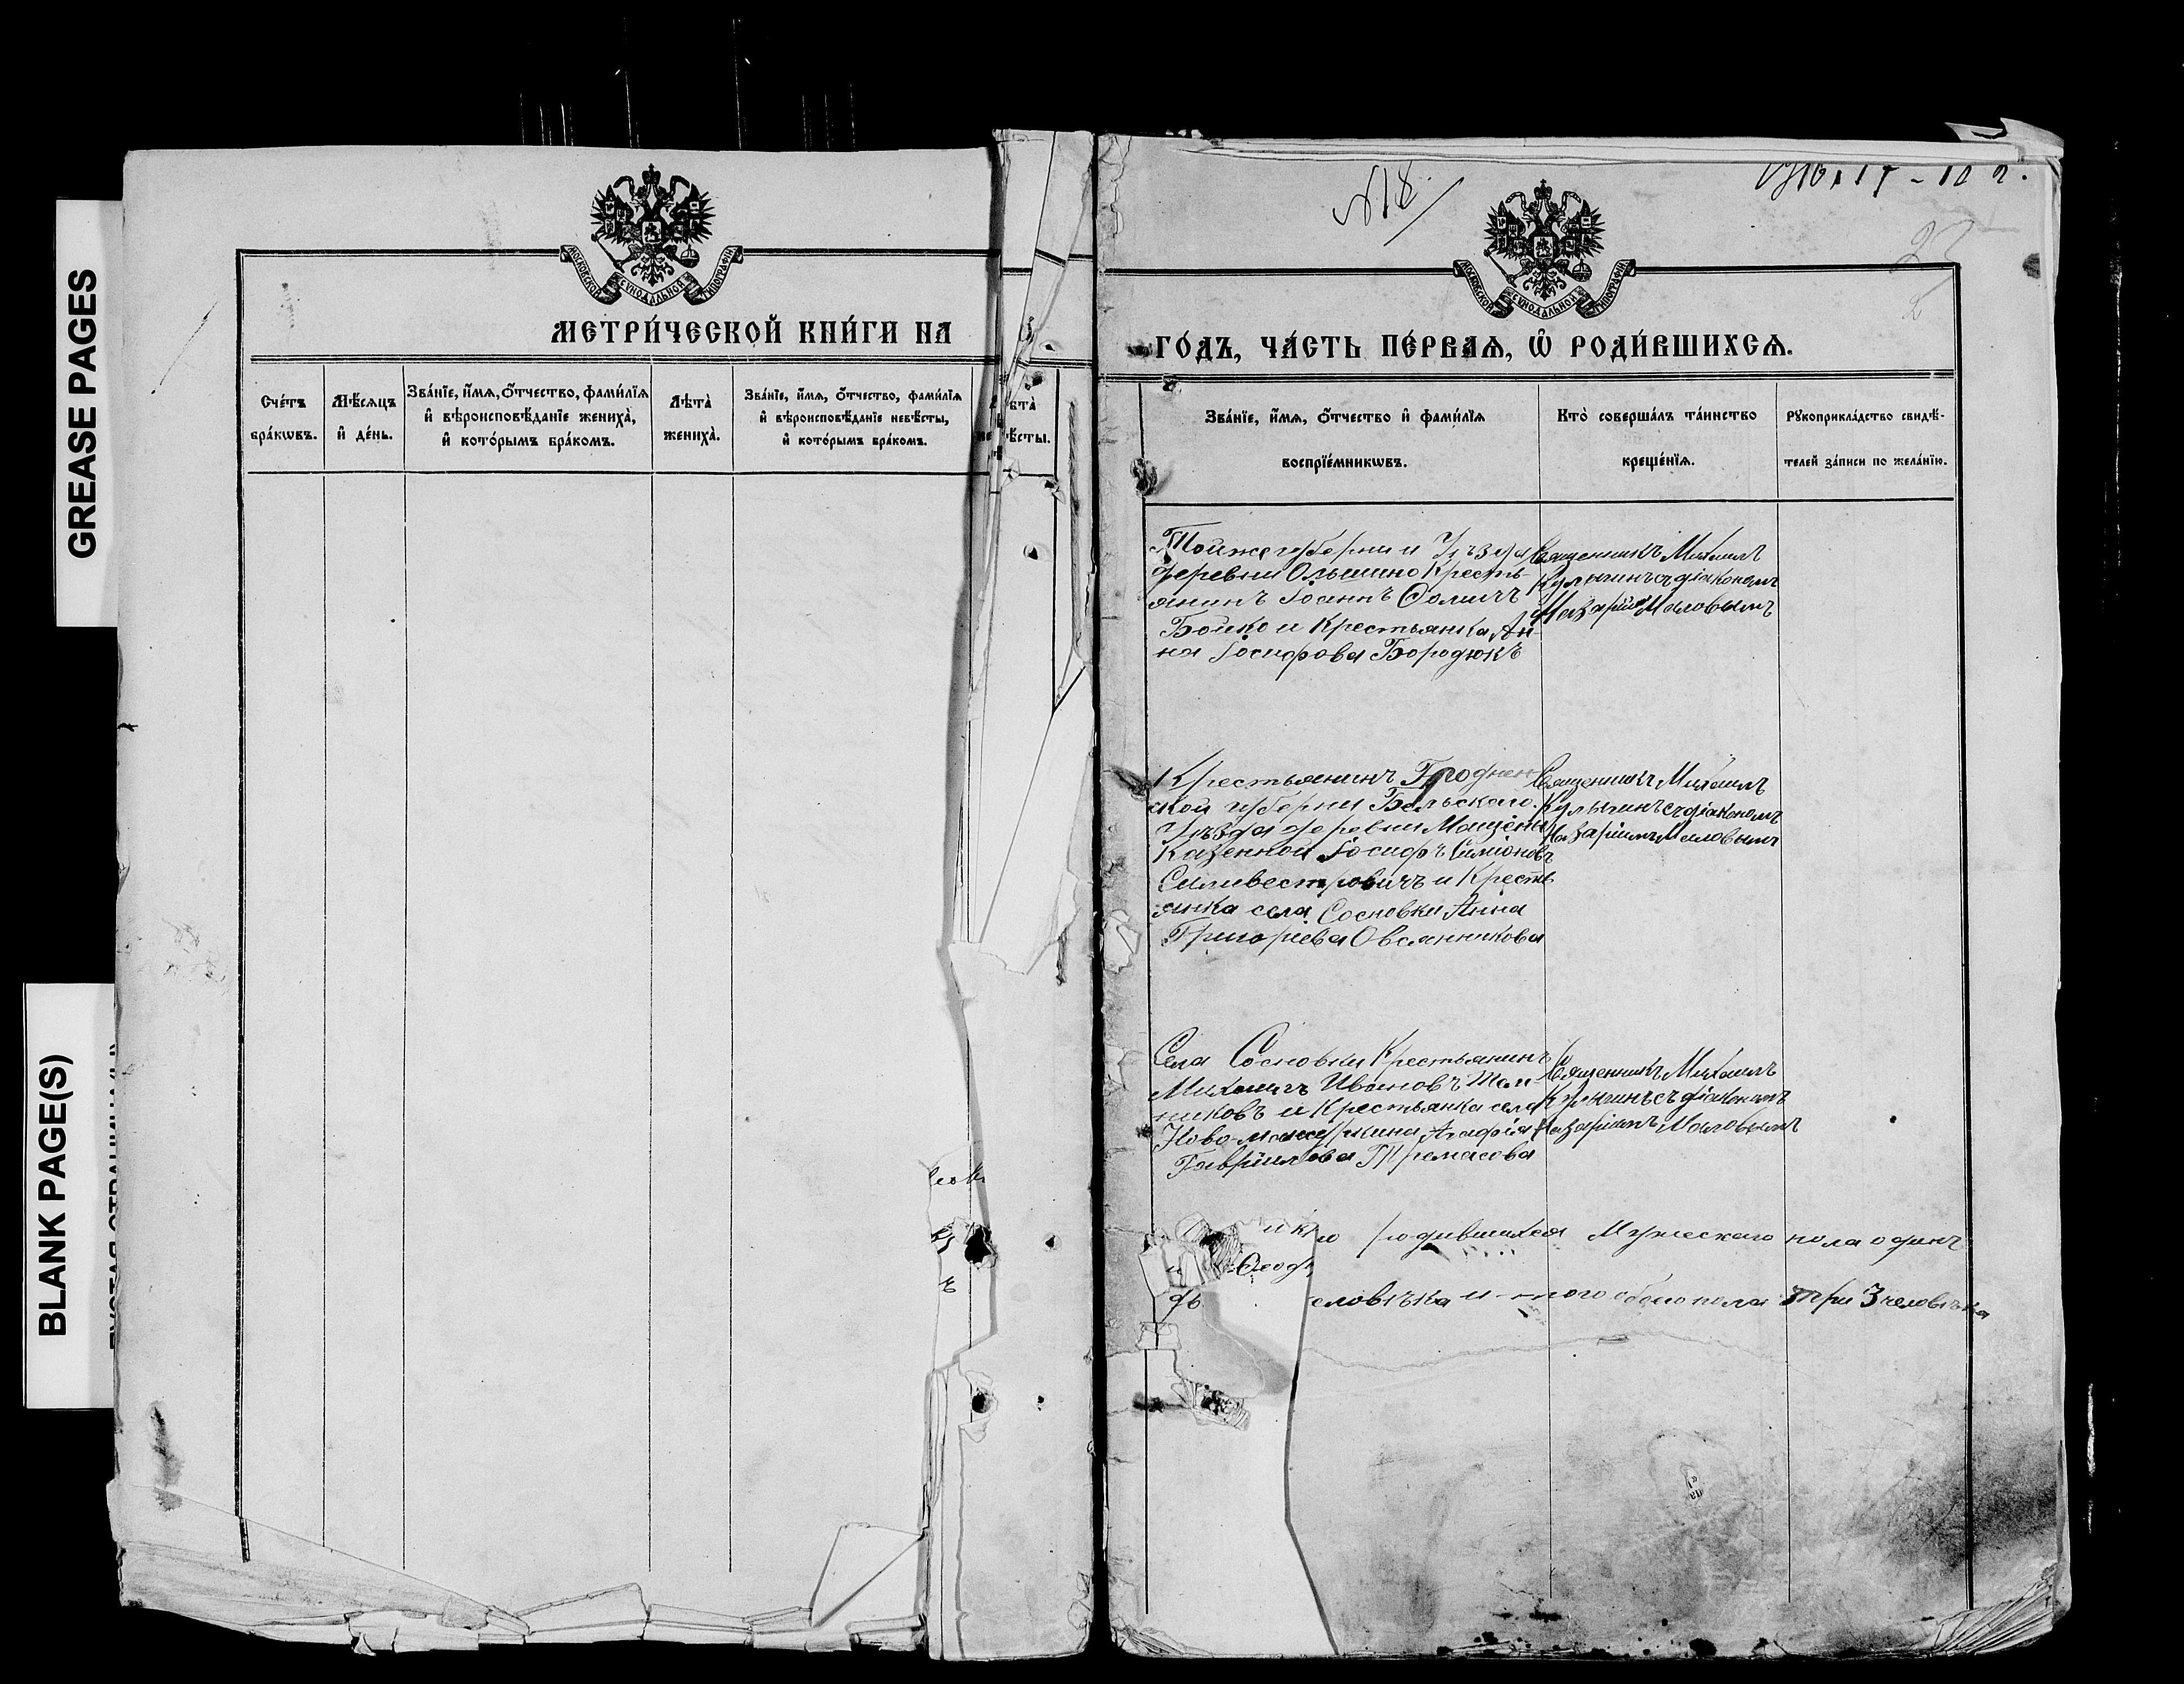 GREASE PAGES
BLANK PAGE(S)
МОСКОВСКОЙ СѴНОДАЛЬНОЙ ТИПОГРАФІИ
МЕТРИ́ЧЕСКОЙ КНИ́ГИ НА
Сче́тъ бра́кѡвъ.
Мѣ́сяцъ и҆ де́нь.
Зва́нїе, и҆́мя, ѻ҆́тчество, фами́лїя и҆ вѣроисповѣ́данїе жениха̀, и҆ кото́рымъ бра́комъ.
Лѣта̀ жениха̀.
Зва́нїе, и҆́мя, ѻ҆́тчество, фами́лїя и҆ вѣроисповѣ́данїе невѣ́сты, и҆ кото́рымъ бра́комъ.
№18.
МОСКОВСКОЙ СѴНОДАЛЬНОЙ ТИПОГРАФІИ
ГО́ДЪ, ЧА́СТЬ ПЕ́РВАѦ, Ѡ҆ РОДИ́ВШИХСѦ.
Зва́нїе, и҆́мя, ѻ҆́тчество и҆ фами́лїя воспрїе́мникѡвъ.
Кто̀ соверша́лъ та́инство креще́нїя.
Рꙋкоприкла́дство свидѣ́телей за́писи по жела́нїю.
Тойже губернии Уѣзда
деревни Ольшино Кресть-
янинъ Іоаннъ Ѳомичъ
Бойко и Крестьянка Ан-
на Іосифова Бородюкъ
Священникъ Михаилъ
съ діакономъ
Назаріемъ Маловымъ
Крестьянинъ Гроднен
ской губерни Бельскаго
Уѣзда деревни Мощёны
Казенной Іосифъ Симіоновъ
Силивестровичъ и Кресть
янка села Сосновки Анна
Григориева Овсянникова
Священникъ Михаилъ
съ діакономъ
Назаріемъ Маловымъ
Села Сосновки Крестьянинъ
Михаилъ Ивановъ
никовъ и Крестьянка села
Ново-мансуркина Агафія
Гавріилова Тремасова
Священникъ Михаилъ
съ діакономъ
Назаріемъ Маловымъ
родившихся Мужескаго пола одинъ
еловѣка и того обоего пола три 3 человѣка